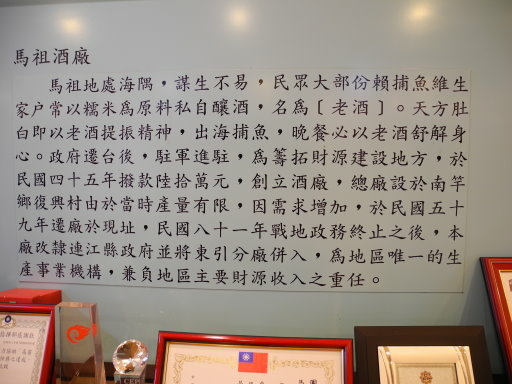 馬祖酒廠
馬祖地處海隅，謀生不易，民眾大部份賴捕魚維生
家戶常以糯米為原料私自釀酒，名為〔老酒〕。天方肚
白即以老酒提振精神，出海捕魚，晚餐必以老酒舒解身
心。政府遷台後，駐軍進駐，為籌拓財源建設地方，於
民國四十五年撥款陸拾萬元，創立酒廠，總廠設於南竿
鄉復興村由於當時產量有限，因需求增加，於民國五十
九年遷廠於現址，民國八十一年戰地政務終止之後，本
廠改隸連江縣政府並將東引分廠併入，為地區唯一的生
產事業機構，兼負地區主要財源收入之重任。